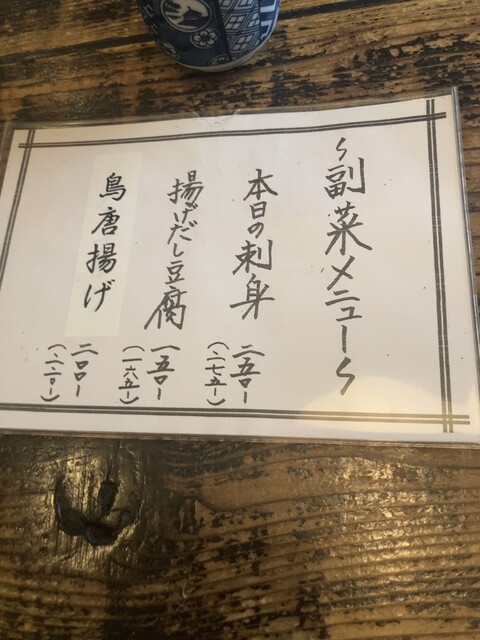 〜副菜メニュー〜
本日の刺身
二五〇ー
(二七五ー)
揚げだし豆腐
一五〇ー
(一六五ー)
鳥唐揚げ
二〇〇ー
(二二〇ー)